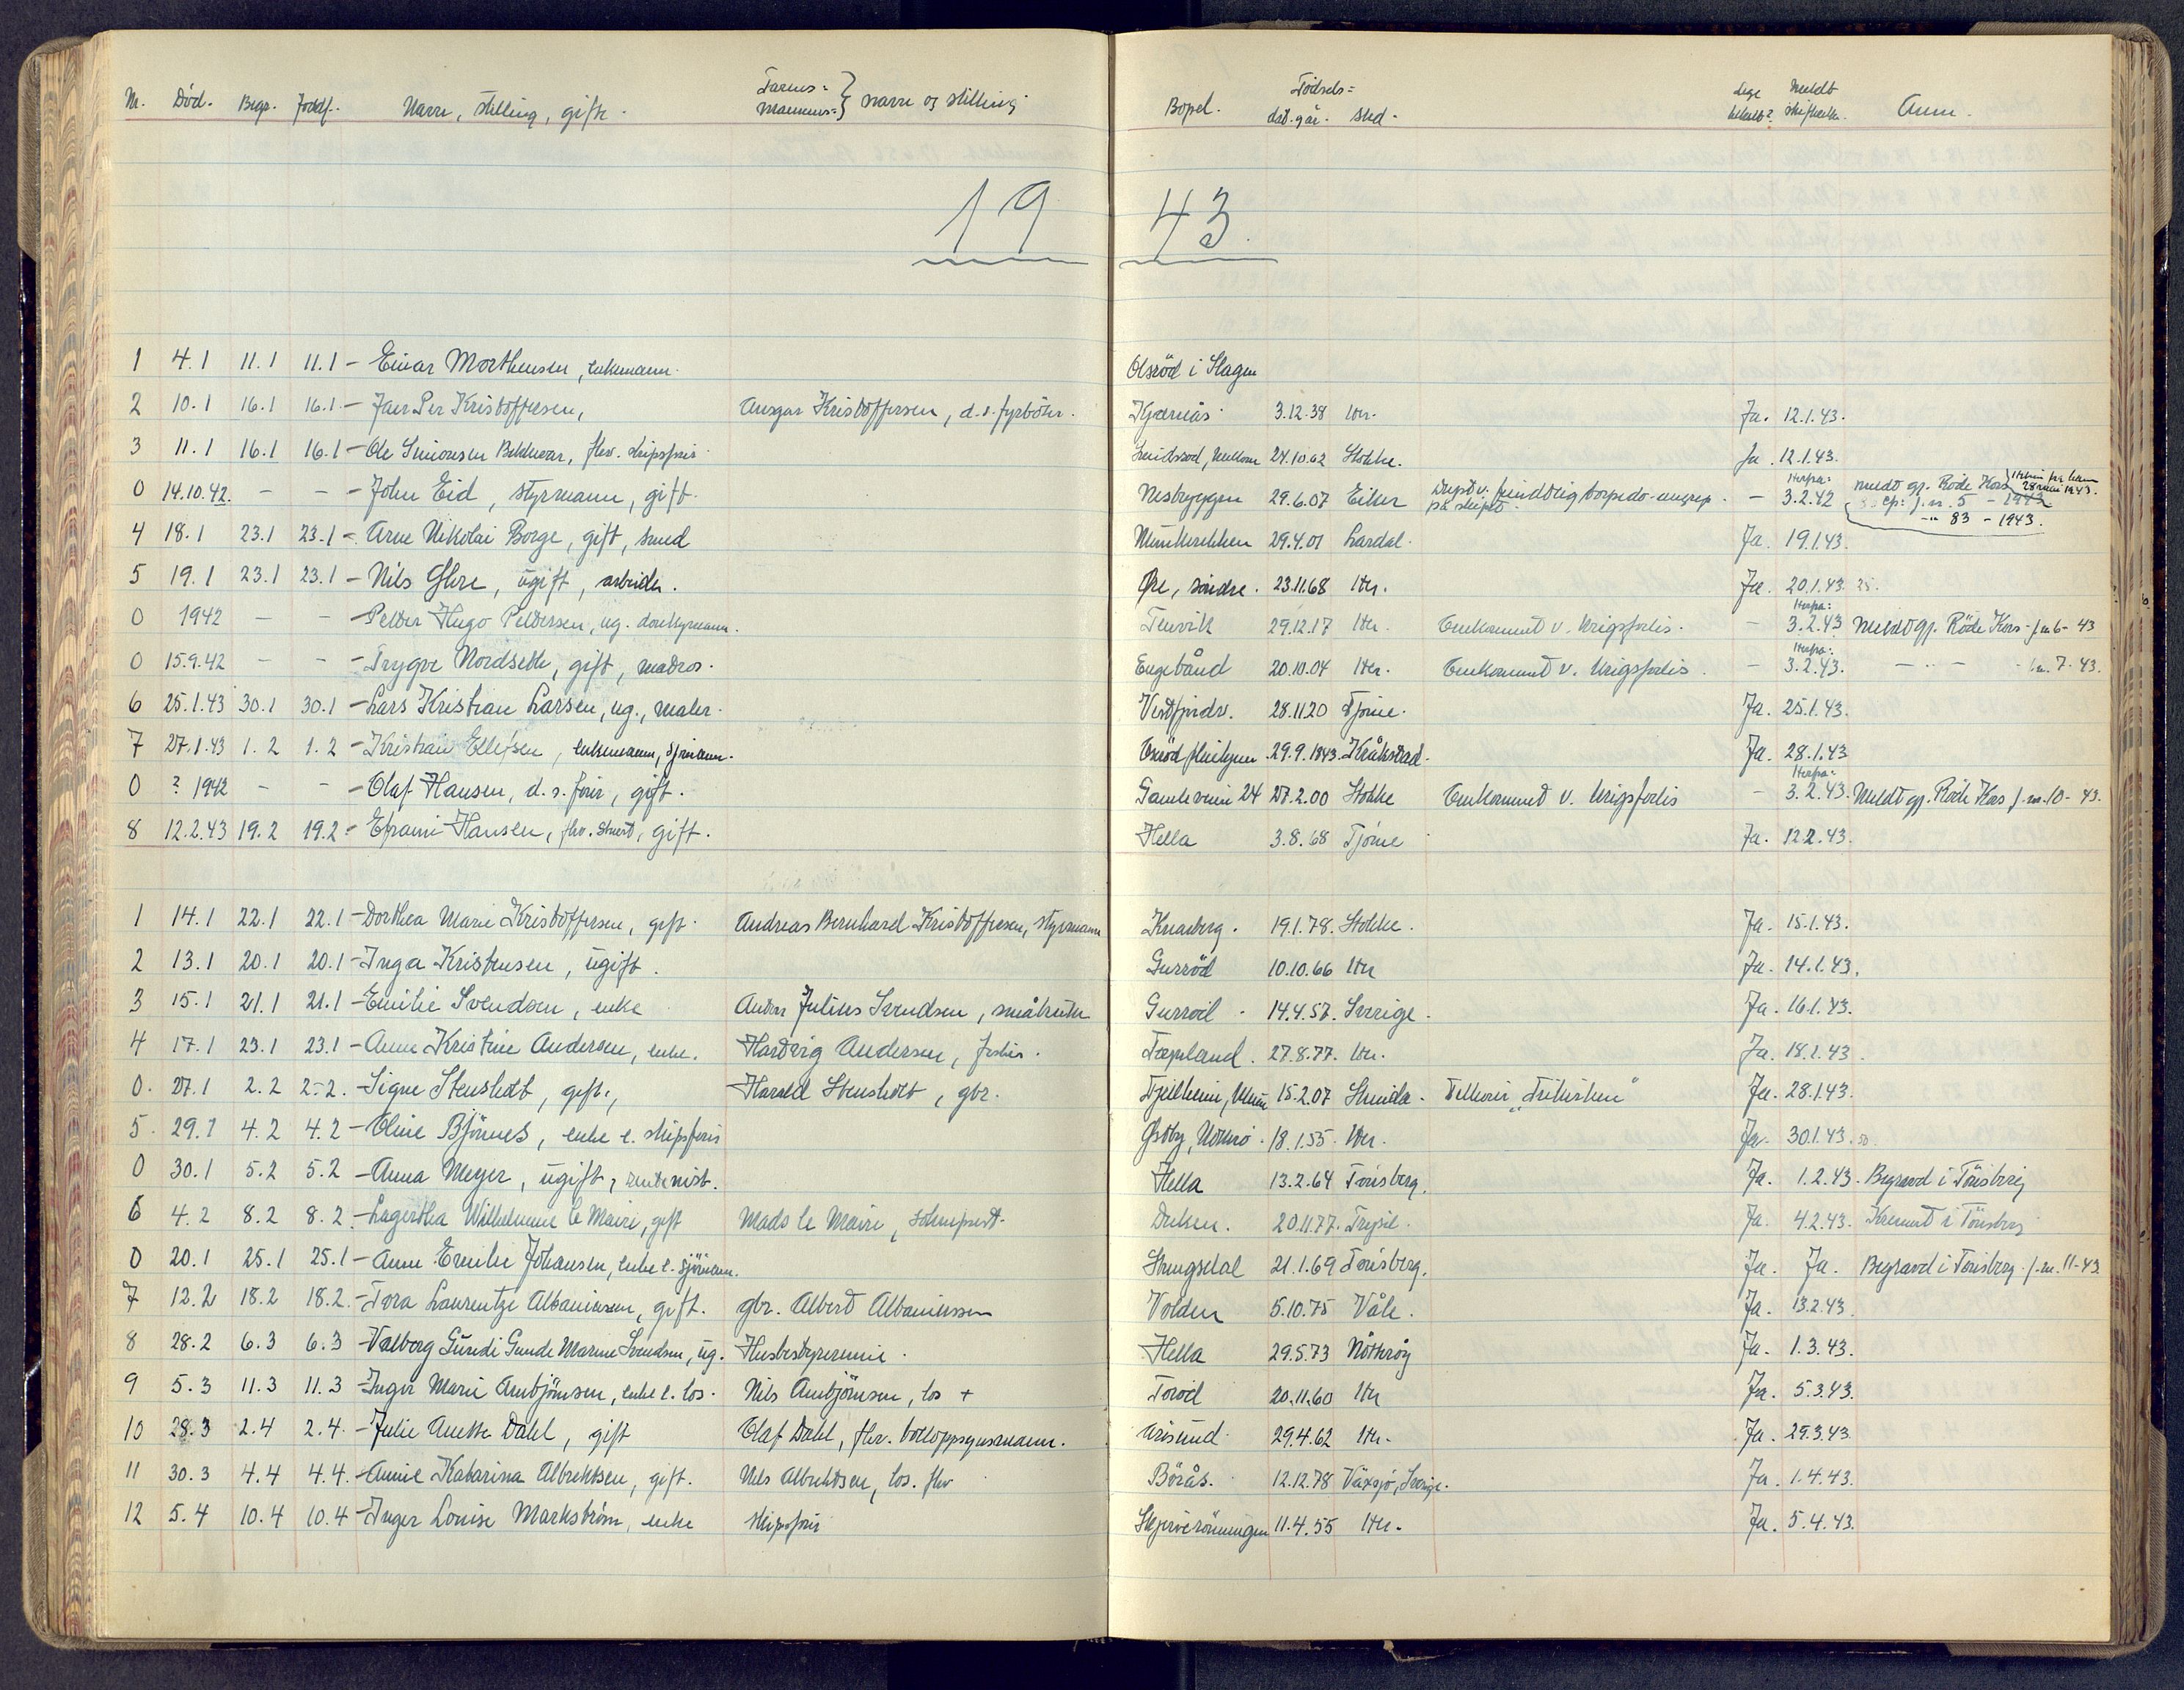 Nr. Död. Begr. Jordf. Navn, stilling, gift. Farens= Mannens= } navn og stilling Bopel. Födsels= dat. og år. sted. Lege tilkalt? Meldt skifterett. Anm.
19 43.
1 4.1 11.1 11.1 - Einar Morthensen, enkemann. Olsröd i Slagen
2 10.1 16.1 16.1 - Jan Per Kristoffersen, Ansgar Kristoffersen, d.s. fyrböter. Kjærnås 3.12.38 Nr. Ja. 12.1.43.
3 11.1 16.1 16.1 - Ole Simonsen Bekkevar, fhv. skipsförer 24.10.62 Stokke. Ja. 12.1.43.
0 14.10.42. - - - John Eid, styrmann, gift. Nesbryggen 29.6.07 Eiker Drept v. fiendtlig torpedo-angrep på skipet. - 3.2.42 meldt gj. Röde Kors j.nr. 5 - 1943
-"- 83 - 1943.
4 18.1 23.1 23.1 - Arne Nikolai Borge, gift, smed Munkerekken 29.4.01 Lardal. Ja. 19.1.43.
5 19.1 23.1 23.1 - Nils Øhre, ugift, arbeider. Øre, söndre. 23.11.68 Ntr. Ja. 20.1.43.
0 1942 - - - Petter Hugo Pettersen, ug. donkeymann. Tenvik 29.12.17 Ntr. Omkommet v. krigsforlis. - 3.2.43 Meldt gj. Röde Kors - j.nr 6 - 43
0 15.9.42 - - - Trygve Nordseth, gift, matros. Engebånd 20.10.04 Ntr. Omkommet v. krigsforlis. - 3.2.43. - " - j.nr. 7 - 43.
6 25.1.43 30.1 30.1 - Lars Kristian Larsen, ug., maler. 28.11.20 Tjöme. Ja. 25.1.43.
7 27.1.43 1.2 1.2 - Kristian Ellefsen, enkemann, sjömann. 29.9.1843. Kråkstad. Ja. 28.1.43
0 ? 1942 - - - Olaf Hansen, d.s. förer, gift. Gamleveien 24 27.2.00 Stokke Omkommet v. krigsforlis - 3.2.43. Meldt gj. Röde Kors j.nr. 10 - 43.
8 12.2.43 19.2 19.2 - Efraim Hansen, fhv. stuert, gift. Hella 3.8.68 Tjöme Ja. 12.2.43.
1 14.1 22.1 22.1 - Dorthea Marie Kristoffersen, gift. Andreas Bernhard Kristoffersen, styrmann Knarberg. 19.1.78. Stokke. Ja. 15.1.43.
2 13.1 20.1 20.1 - Inga Kristensen, ugift. Gurröd 10.10.66 Ntr Ja. 14.1.43.
3 15.1 21.1 21.1 - Emilie Svendsen, enke Anton Julius Svendsen, småbruker Gurröd. 14.4.57. Sverige. Ja. 16.1.43.
4 17.1 23.1 23.1 - Anne Kristine Andersen, enke. Hartvig Andersen, fisker. Torpland. 27.8.77. Ntr. Ja. 18.1.43.
0. 27.1 2.2 2-2. - Signe Stensholt, gift., Harald Stensholt, gbr. 15.2.07 "Frikirken" Ja. 28.1.43.
5. 29.1 4.2 4.2 - Oline Björnes, enke e. skipsförer Østby, 18.1.55. Ntr. Ja. 30.1.43.
0 30.1 5.2 5.2 - Anna Meyer, ugift, rentenist. Hella 13.2.64 Tönsberg. Ja. 1.2.43. Begravd i Tönsberg
6 4.2 8.2 8.2. - Lagertha Wilhelmine le Maire, gift Mads le Maire, Duken. 20.11.77. Trysil. Ja. 4.2.43. Kremert i Tönsberg
0 20.1 25.1 25.1 - Anne Emilie Johansen, enke e. sjömann. Strengsdal 21.1.69 Tönsberg. Ja. Ja. Begravd i Tönsberg. j.nr. 11-43
7 12.2 18.2 18.2. - Tora Laurentze Albaniussen, gift. gbr. Albert Albaniussen Volden 5.10.75 Våle. Ja. 13.2.43.
8 28.2 6.3 6.3 - Valborg Gundi Gunde Marine Svendsen, ug. Husbestyrerinne. Hella 29.5.73 Nötteröy Ja. 1.3.43.
9 5.3 11.3 11.3 - Inger Marie Arnbjörnsen, enke e. los. Nils Arnbjörnsen, los + Toröd 20.11.60 Ntr Ja. 5.3.43.
10 28.3 2.4 2.4. - Julie Anette Dahl, gift Olaf Dahl, fhv. tolloppsynsmann. Årösund 29.4.62 Ntr. Ja. 29.3.43.
11 30.3 4.4 4.4. - Annie Katarina Albrektsen, gift. Nils Albrektsen, los. fhv Börås. 12.12.78 Växsjö, Sverige. Ja. 1.4.43.
12 5.4 10.4 10.4 - Inger Louise Markström, enke skipsförer Skjerveröningen 11.4.55 Ntr. Ja. 5.4.43.